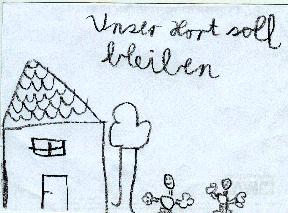 Unser Hort soll
bleiben